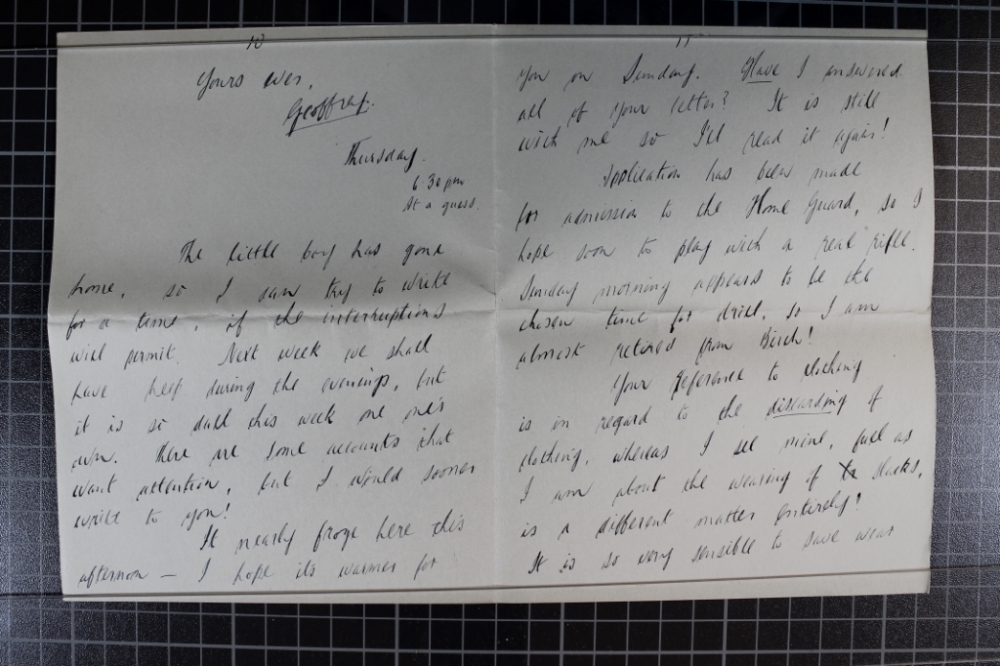 10
Yours ever,
Geoffrey.
Thursday.
6.30 pm
At a guess.
The little boy has gone
home, so I can try to write
for a time, if the interruptions
will permit. Next week we shall
have help during the evenings, but
it is so dull this week one one's
own. There are some accounts that
want attention, but I would sooner
write to you!
It nearly froze here this
afternoon — I hope its warmer for
11
you on Sunday. Have I answered
all of your letter? It is still
with me so I'll read it again!
Application has been made
for admission to the Home Guard, so I
hope soon to play with a real rifle.
Sunday morning appears to be the
chosen time for drill, so I am
almost retired from Birch!
Your reference to clothing
is in regard to the discarding of
clothing, whereas I see mine, fuel as
I am about the wearing of slacks,
is a different matter entirely!
It is so very sensible to save wear